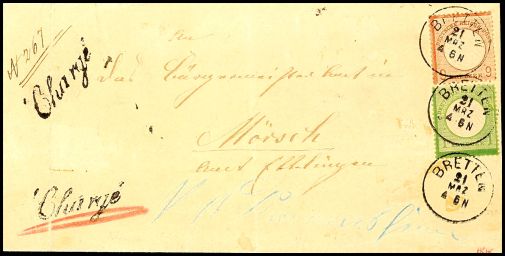 N 267
Chargé
An
das Bürgermeisteramt in
Mörsch
Amt Ettlingen
Chargé
BRETTEN
21
MRZ
4 6 N
BRETTEN
21
MRZ
4 6 N
BRETTEN
21
MRZ
4 6 N